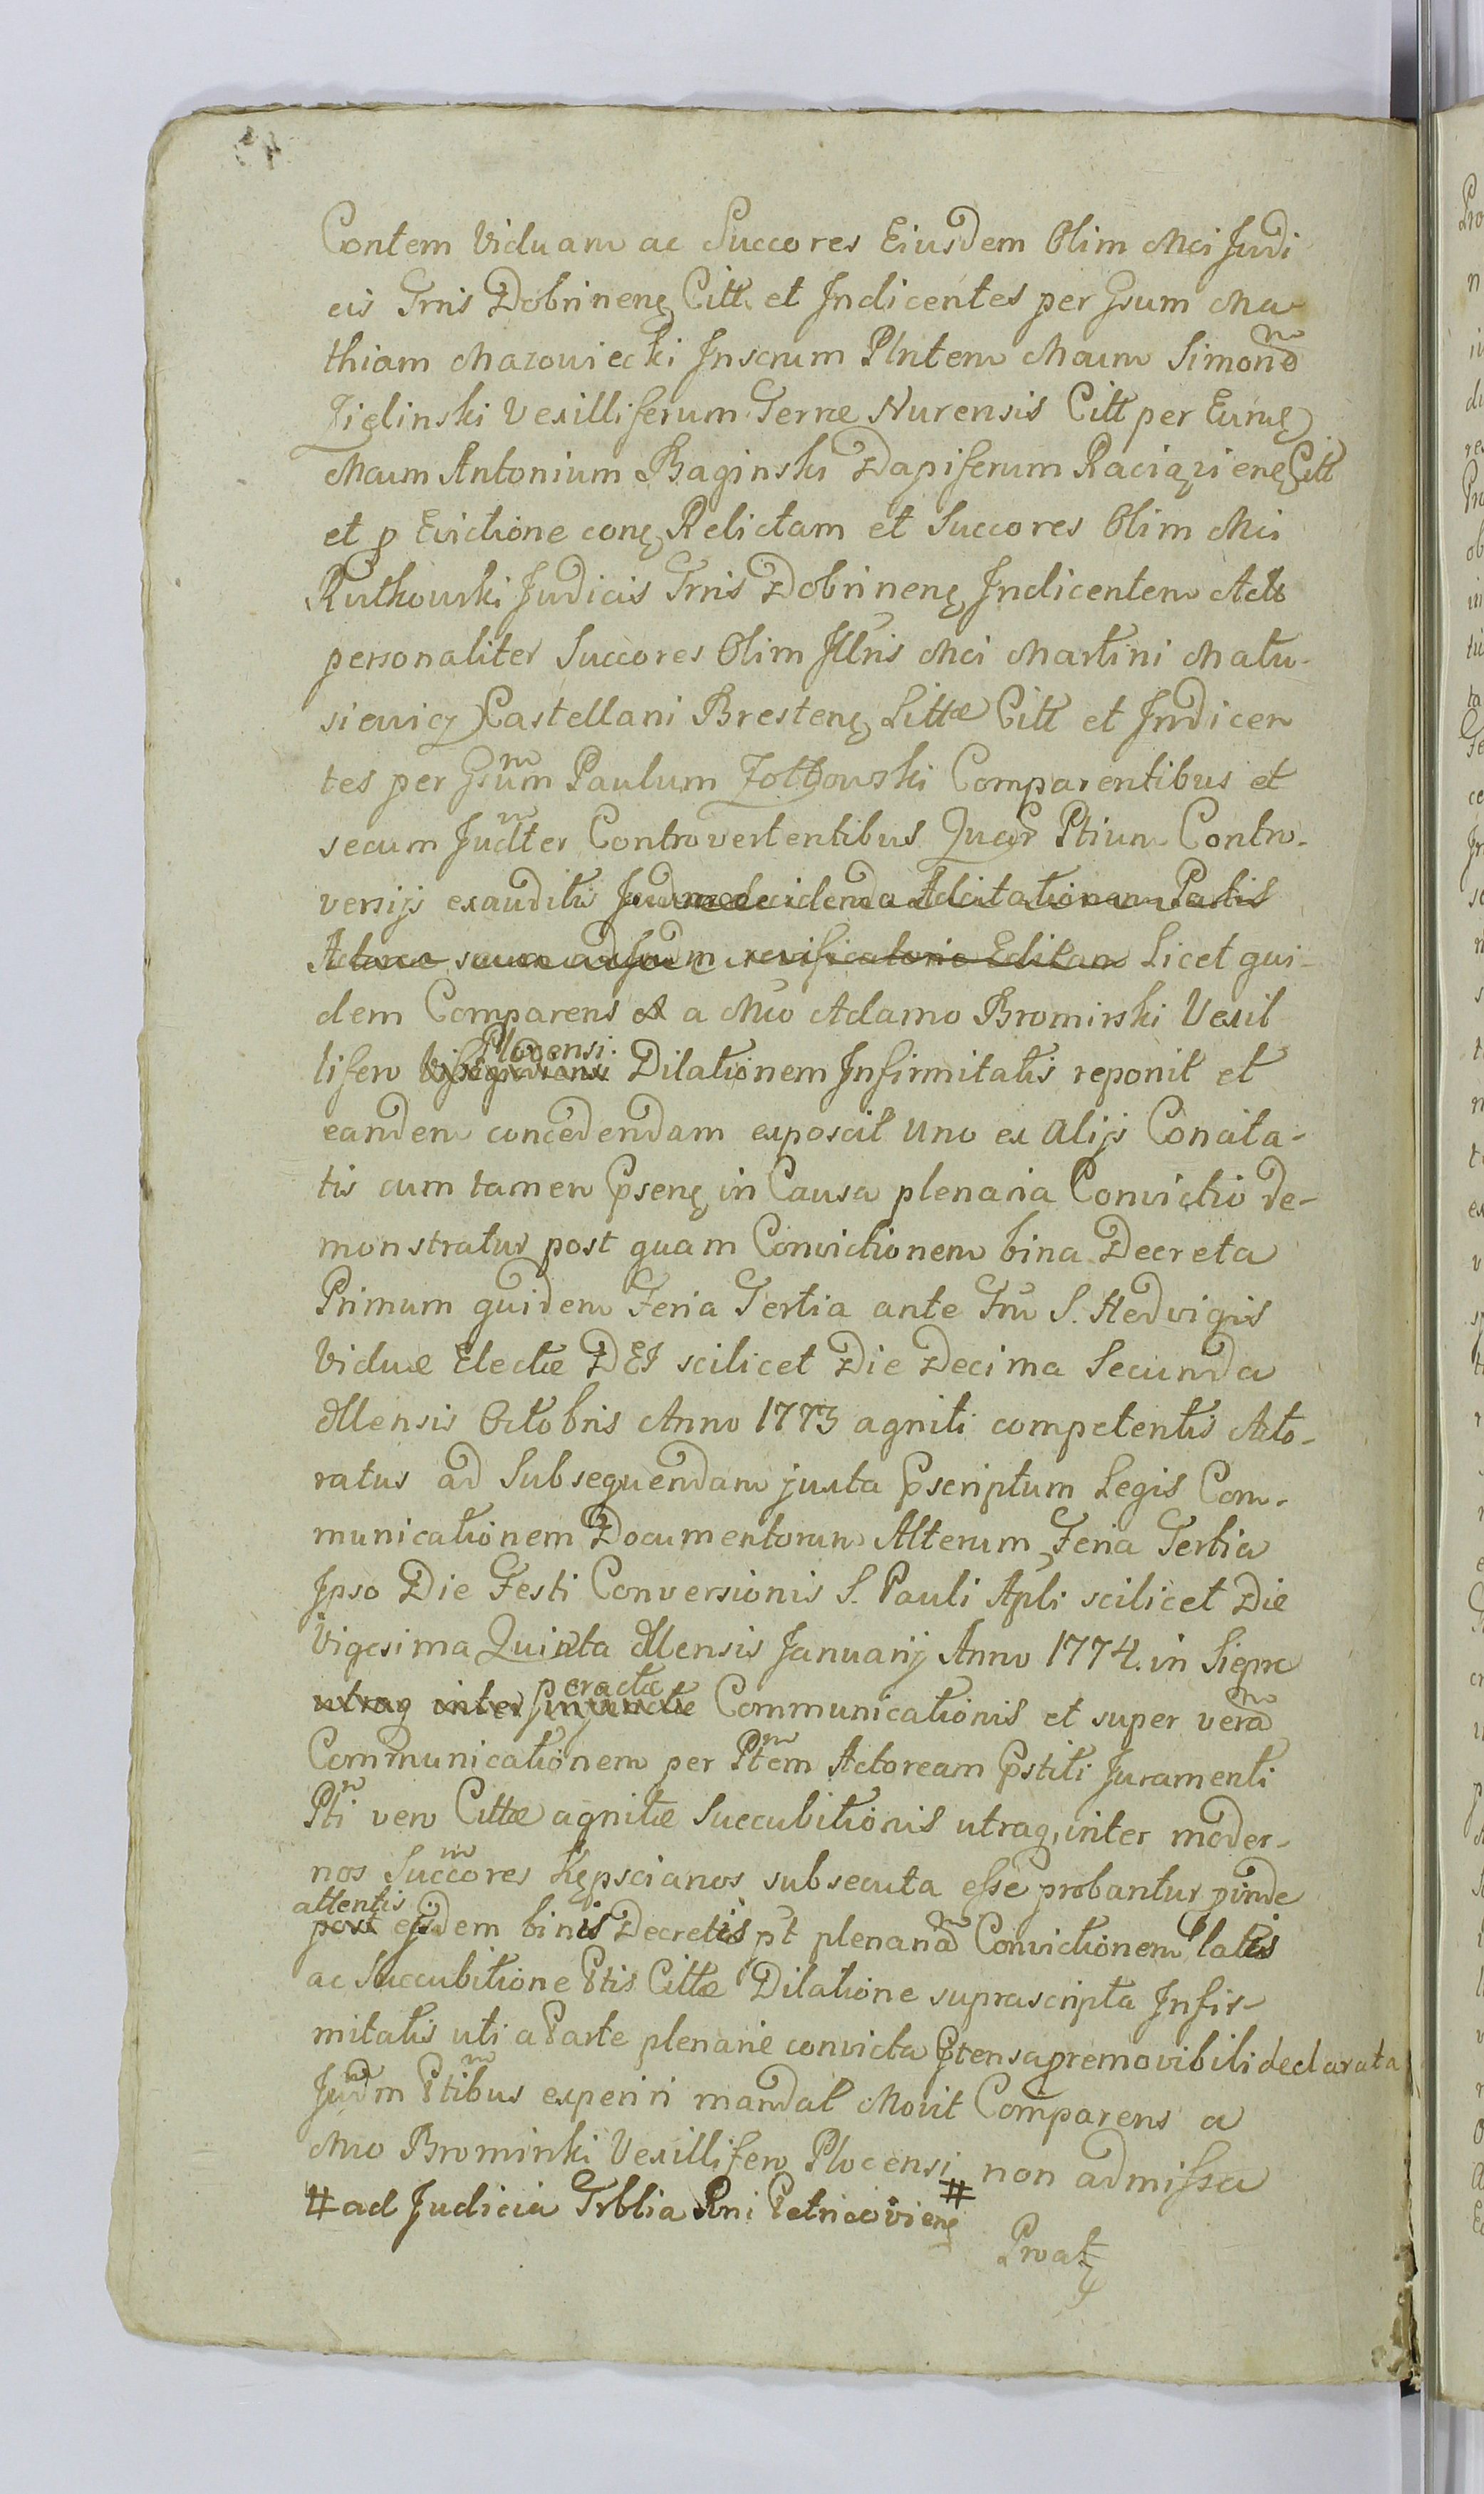 Contem Viduam ac Succores Eiusdem Olim Mci Judi
cis Trris Dobrinenę Citt. et Indicentes per Gsum Ma
thiam Mazowiecki Inscrum Plntem Mcum Simonē
Zięlinski Vexilliferum Terræ Nurensis Citt per Eumę
Mcum Antonium Baginski Dapiferum Raciązienę Citt
et p Evictione conę Relictam et Succores Olim Mci
Rutkowski Judicis Trris Dobrinenę Indicentem Acto
personaliter Succores Olim Illris Mci Martini Matu-
siewicz Castellani Brestenę Littæ Citt et Indicen
tes per Gsum Paulum Zottowski Comparentibus et
secum Judlter Controvertentibus Quar Ptium Contro-
versijs exauditis Jud decidenda Adcitationem Partis
Actorea suum ad Judm revisificatorio Editam Licet qui-
dem Comparens a Mco Adamo Bromirski Vexil
Plocensi.
lifero Dilationem Infirmitatis reponit et
eandem concedendam exposcit Uno ex Alijs Concita-
tis cum tamen Psenę in Causa plenaria Convictio de-
monstratur post quam Convictionem bina Decreta
Primum quidem Feria Tertia ante Fm S. Hedvigis
Viduæ Electæ DEI scilicet Die Decima Secunda
Mensis Octobris Anno 1773 agniti competentis Acto-
ratus ad Subsequendam juxta Pscriptum Legis Com-
municationem Documentorum Alterum Feria Tertia
Ipso Die Festi Conversionis S. Pauli Apli scilicet Die
Vigesima Quinta Mensis Januarij Anno 1774. in Siepre
peractæ
utrag inter injunctæ Communicationis et super verā
Communicationem per Ptem Actoream Pstiti Juramenti
Pti vero Cittæ agnitæ Succubitionis utraq, inter moder-
nos Succores Kępscianos subsecuta esse probantur pinde
attentis
post ejsdem binis Decretis pt plenariā Convictionem latis
ac Succubitione Ptis Cittæ Dilatione suprascripta Infir-
mitatis uti a Parte plenarie convicta Ptensa premovibili declarata
Judm Ptibus experiri mandat Movit Comparens a
Mco Bromirski Vexillifero Plocensi # non admissa
# ad Judicia Trblia Rni Petricovienę
Proat